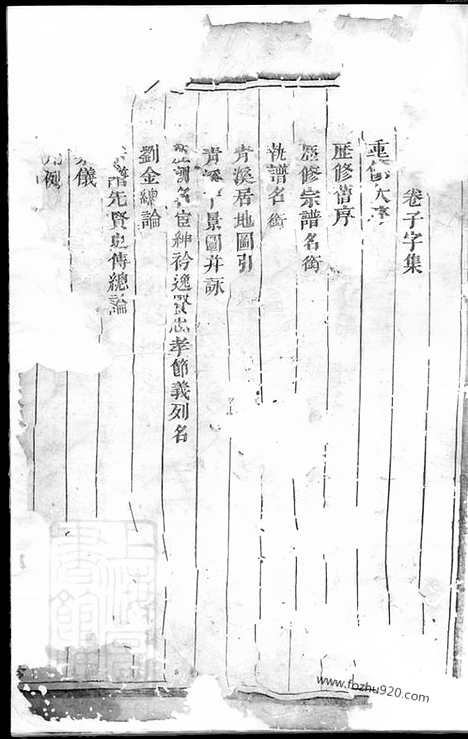 卷子字集
重修大序
歷修舊序
歷修宗譜名銜
執譜名銜
青溪居地圖引
青溪景圖并詠
宦紳衿逸賢忠孝節義列名
劉金總論
先賢史傳總論
儀
例
www.fozhu920.com